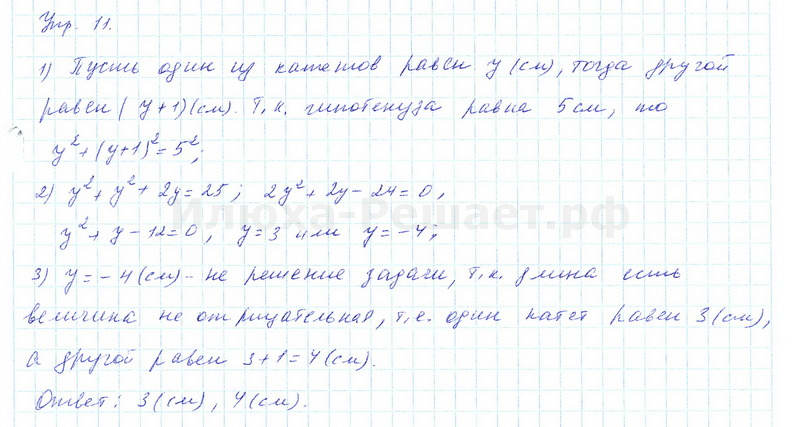 Упр. 11.
1) Пусть один из катетов равен y (см), тогда другой
равен (y+1) (см). Т.к. гипотенуза равна 5 см, то
y²+(y+1)²=5²;
2) y²+y²+2y=25; 2y²+2y-24=0,
Илюха-Решает.рф
y²+y-12=0, y=3 или y=-4;
3) y=-4 (см) - не решение задачи, т.к. длина есть
величина не отрицательная, т.е. один катет равен 3 (см),
а другой равен 3+1=4 (см).
Ответ: 3 (см), 4 (см).